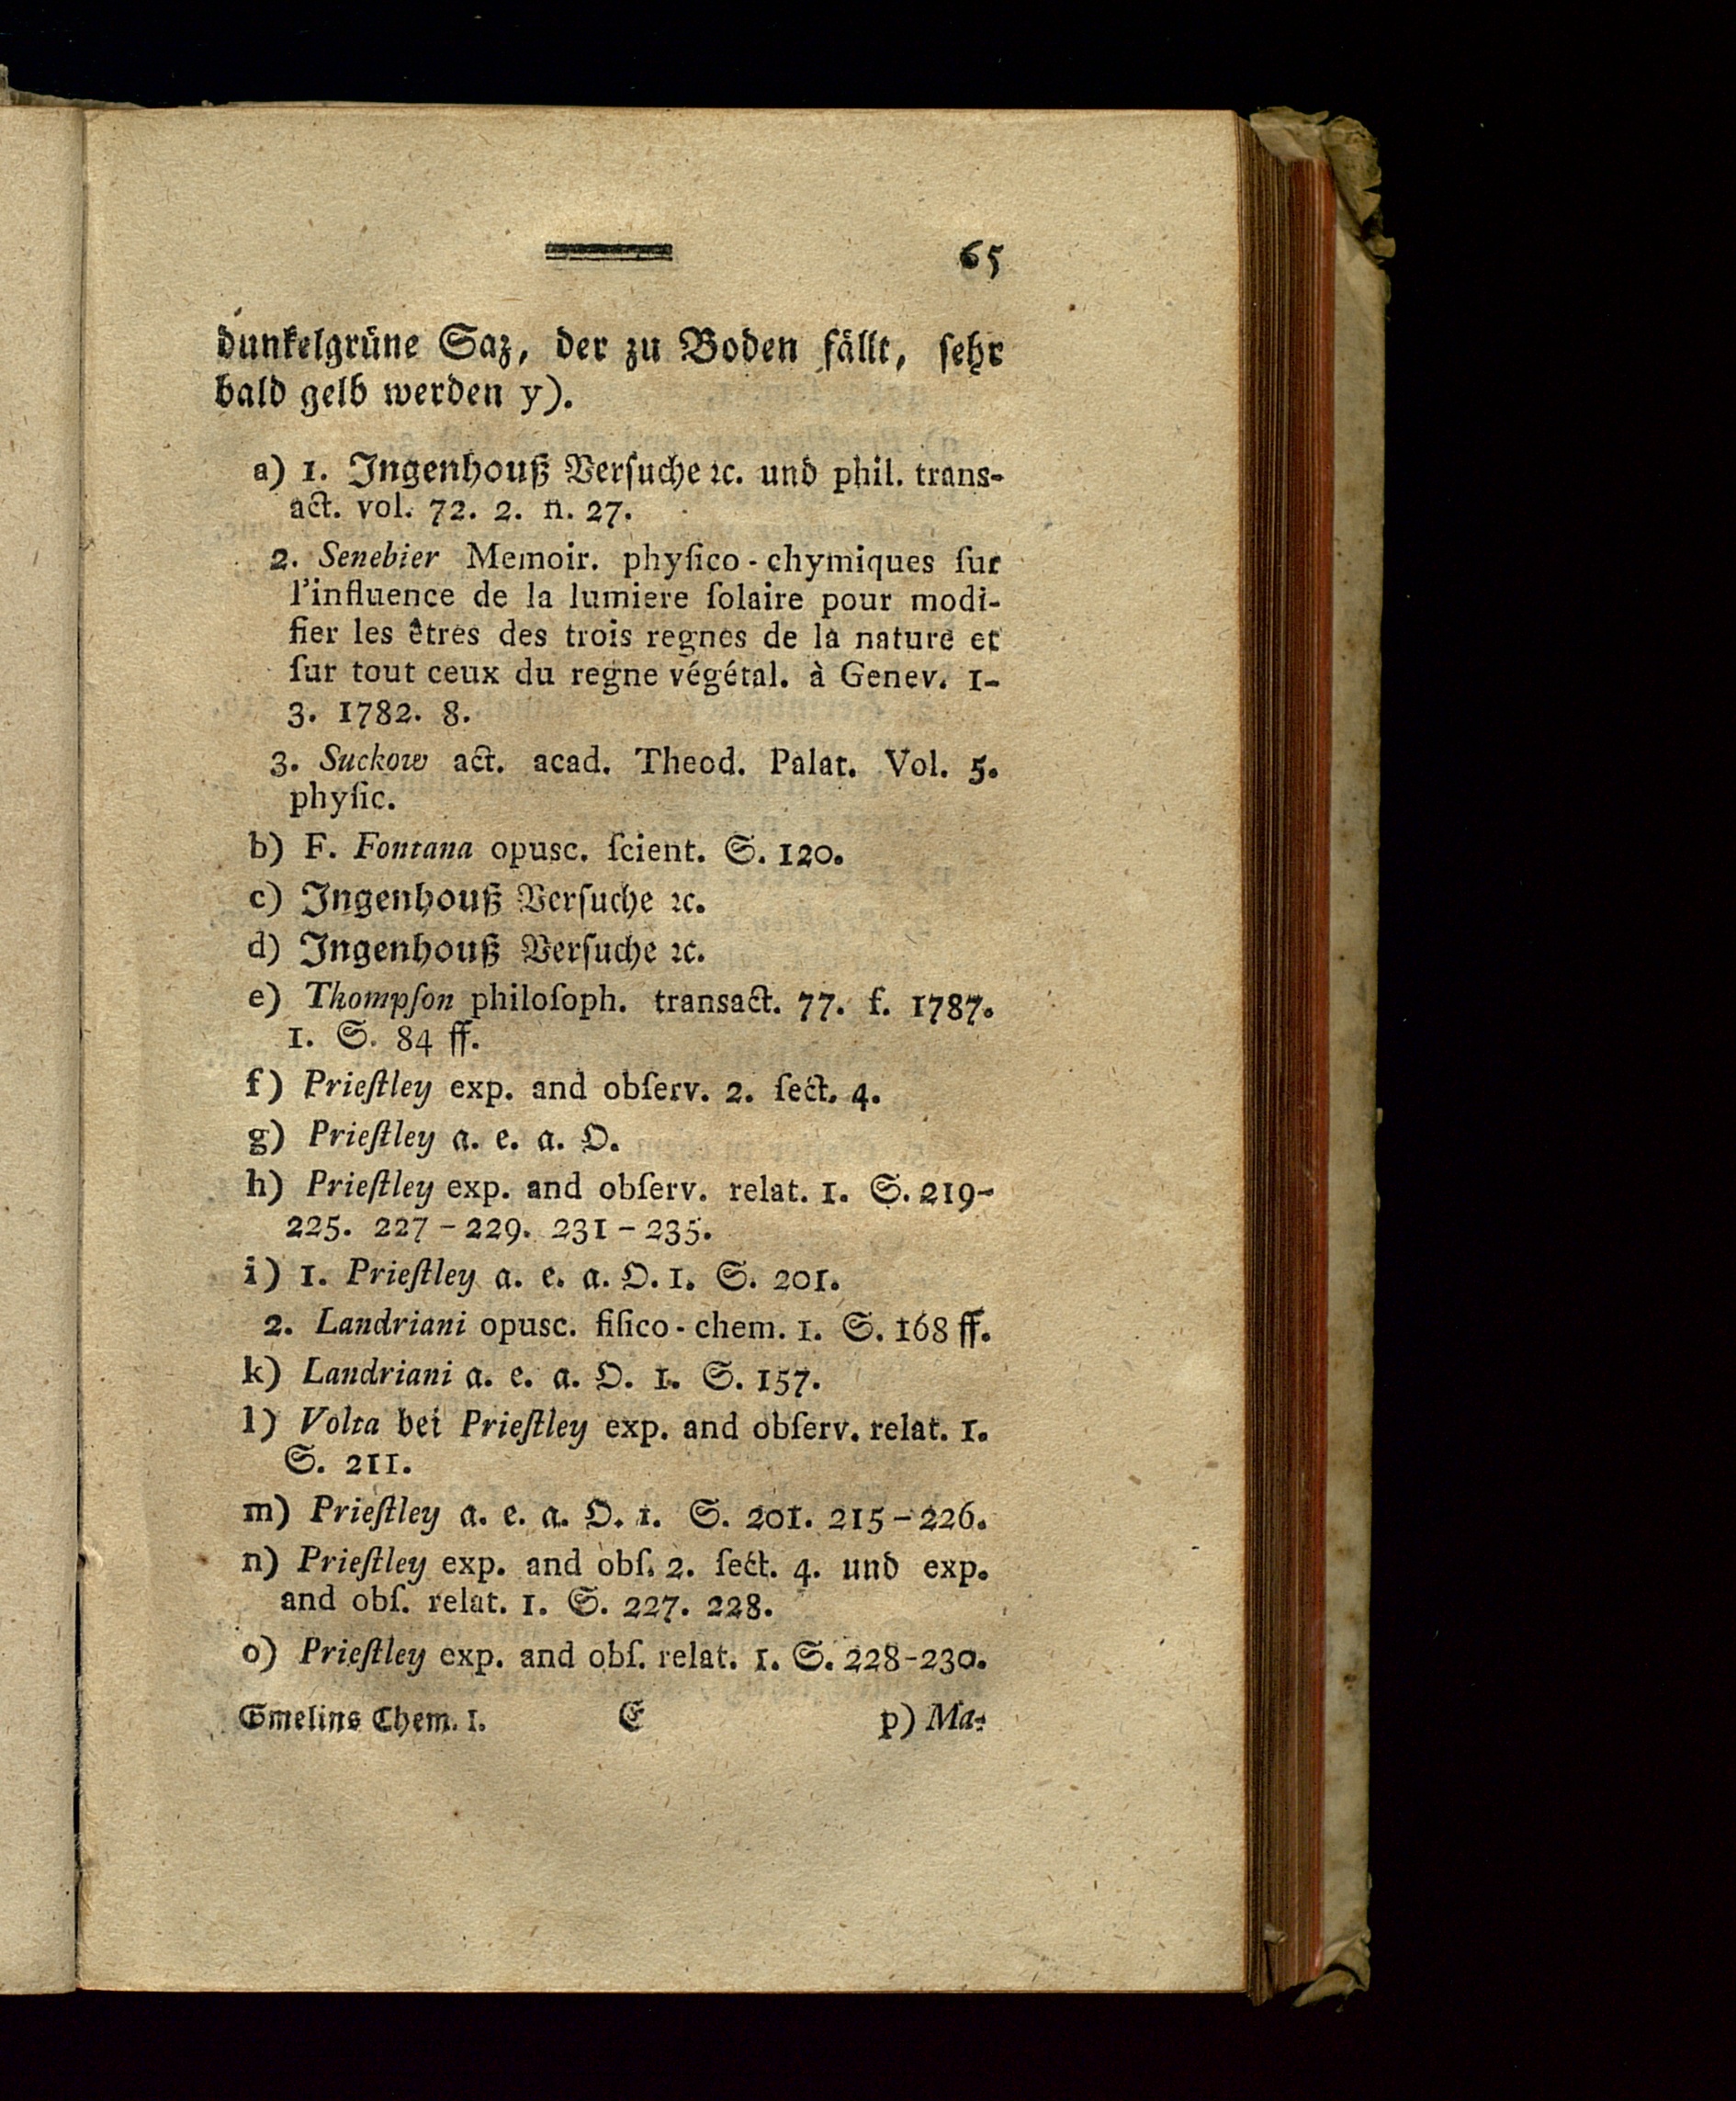 65
dunkelgrüne Saz, der zu Boden fällt, ſehr
bald gelb werden y).
a) 1. Ingenhouß Verſuche ꝛc. und phil. trans-
act. vol. 72. 2. n. 27.
2. Senebier Memoir. phyſico-chymiques ſur
l'influence de la lumiere ſolaire pour modi-
fier les êtres des trois regnes de la nature et
ſur tout ceux du regne végétal. à Genev. 1-
3. 1782. 8.
3. Suckow act. acad. Theod. Palat. Vol. 5.
phyſic.
b) F. Fontana opusc. ſcient. S. 120.
c) Ingenhouß Verſuche ꝛc.
d) Ingenhouß Verſuche ꝛc.
e) Thompſon philoſoph. transact. 77. f. 1787.
1. S. 84 ff.
f) Prieſtley exp. and obſerv. 2. ſect. 4.
g) Prieſtley a. e. a. O.
h) Prieſtley exp. and obſerv. relat. 1. S. 219-
225. 227-229. 231-235.
i) 1. Prieſtley a. e. a. O. 1. S. 201.
2. Landriani opusc. fiſico-chem. 1. S. 168 ff.
k) Landriani a. e. a. O. 1. S. 157.
l) Volta bei Prieſtley exp. and obſerv. relat. 1.
S. 211.
m) Prieſtley a. e. a. O. 1. S. 201. 215-226.
n) Prieſtley exp. and obſ. 2. ſect. 4. und exp.
and obſ. relat. 1. S. 227. 228.
o) Prieſtley exp. and obſ. relat. 1. S. 228-230.
Gmelins Chem. 1. E p) Ma-